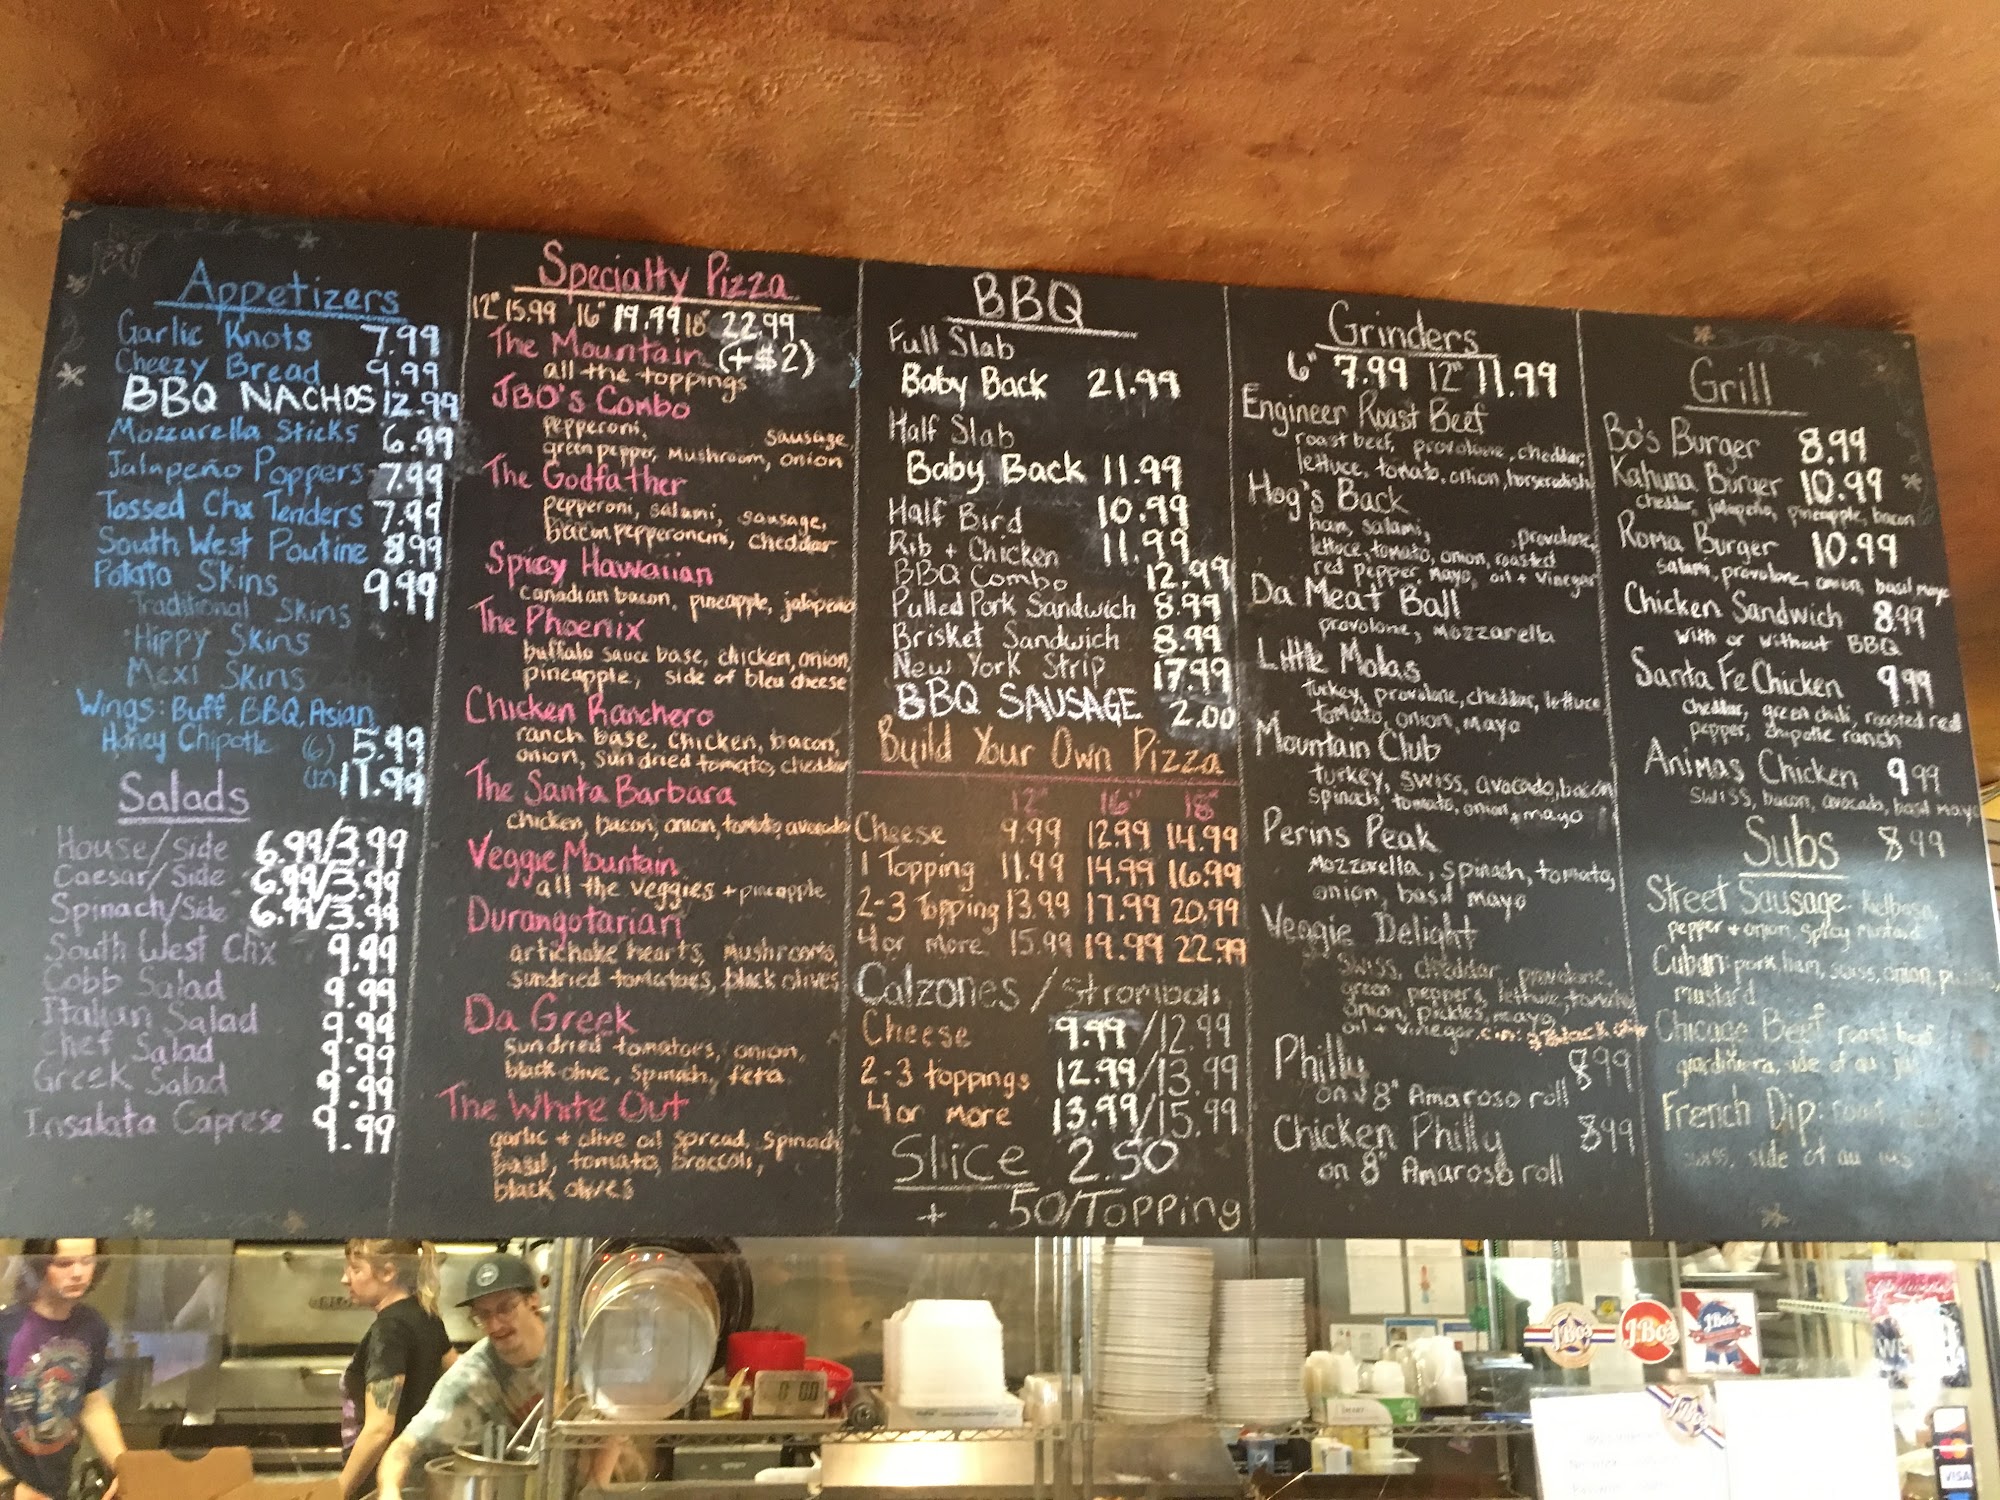 Appetizers
Garlic Knots 7.99
Cheezy Bread 9.99
BBQ NACHOS 12.99
Mozzarella Sticks 6.99
Jalapeño Poppers 7.99
Tossed Chx Tenders 7.99
South West Poutine 8.99
Potato Skins 9.99
Traditional Skins
Hippy Skins
Mexi Skins
Wings: Buff, BBQ, Asian,
Honey Chipotle (6) 5.99
(12) 11.99
Salads
House/Side 6.99/3.99
Caesar/Side 6.99/3.99
Spinach/Side 6.99/3.99
South West Chx 9.99
Cobb Salad 9.99
Italian Salad 9.99
Chef Salad 9.99
Greek Salad 9.99
Insalata Caprese 9.99
Specialty Pizza
12" 15.99 16" 19.99 18" 22.99
The Mountain (+$2)
all the toppings
JBO's Combo
pepperoni, sausage,
green pepper, mushroom, onion
The Godfather
pepperoni, salami, sausage,
bacon pepperoncini, cheddar
Spicy Hawaiian
canadian bacon, pineapple, jalapeño
The Phoenix
buffalo sauce base, chicken, onion,
pineapple, side of bleu cheese
Chicken Ranchero
ranch base, chicken, bacon,
onion, sundried tomato, cheddar
The Santa Barbara
chicken, bacon, onion, tomato, avocado
Veggie Mountain
all the veggies + pineapple
Durangotarian
artichoke hearts, mushrooms,
sundried tomatoes, black olives
Da Greek
sundried tomatoes, onion,
black olive, spinach, feta
The White Out
garlic + olive oil spread, spinach
basil, tomato, broccoli,
black olives
BBQ
Full Slab
Baby Back 21.99
Half Slab
Baby Back 11.99
Half Bird 10.99
Rib + Chicken 11.99
BBQ Combo 12.99
Pulled Pork Sandwich 8.99
Brisket Sandwich 8.99
New York Strip 17.99
BBQ SAUSAGE 2.00
Build Your Own Pizza
12" 16" 18"
Cheese 9.99 12.99 14.99
1 Topping 11.99 14.99 16.99
2-3 Topping 13.99 17.99 20.99
4 or more 15.99 19.99 22.99
Calzones / Stromboli
Cheese 9.99/12.99
2-3 toppings 12.99/13.99
4 or more 13.99/15.99
Slice 2.50
+ .50/Topping
Grinders
6" 7.99 12" 11.99
Engineer Roast Beef
roast beef, provolone, cheddar,
lettuce, tomato, onion, horseradish
Hog's Back
ham, salami, provolone,
lettuce, tomato, onion, roasted
red pepper, mayo, oil + vinegar
Da Meat Ball
provolone, mozzarella
Little Molas
turkey, provolone, cheddar, lettuce,
tomato, onion, mayo
Mountain Club
turkey, swiss, avocado, bacon
spinach, tomato, onion, mayo
Perins Peak
mozzarella, spinach, tomato,
onion, basil mayo
Veggie Delight
swiss, cheddar, provolone,
green peppers, lettuce, tomato,
onion, pickles, mayo,
oil + vinegar,
Philly 8.99
on 8" Amaroso roll
Chicken Philly 8.99
on 8" Amaroso roll
Grill
Bo's Burger 8.99
Kahuna Burger 10.99
cheddar, jalapeño, pineapple, bacon
Roma Burger 10.99
salami, provolone, onion, basil mayo
Chicken Sandwich 8.99
with or without BBQ
Santa Fe Chicken 9.99
cheddar, green chili, roasted red
pepper, chipotle ranch
Animas Chicken 9.99
swiss, bacon, avocado, basil mayo
Subs 8.99
Street Sausage: Kielbasa,
pepper + onion, spicy mustard
Cuban: pork, ham, swiss, onion,
mustard
Chicago Beef roast beef
giardiniera, side of au jus
French Dip: roast
swiss, side of au jus
JBo's
JBo's
JBo's
VISA